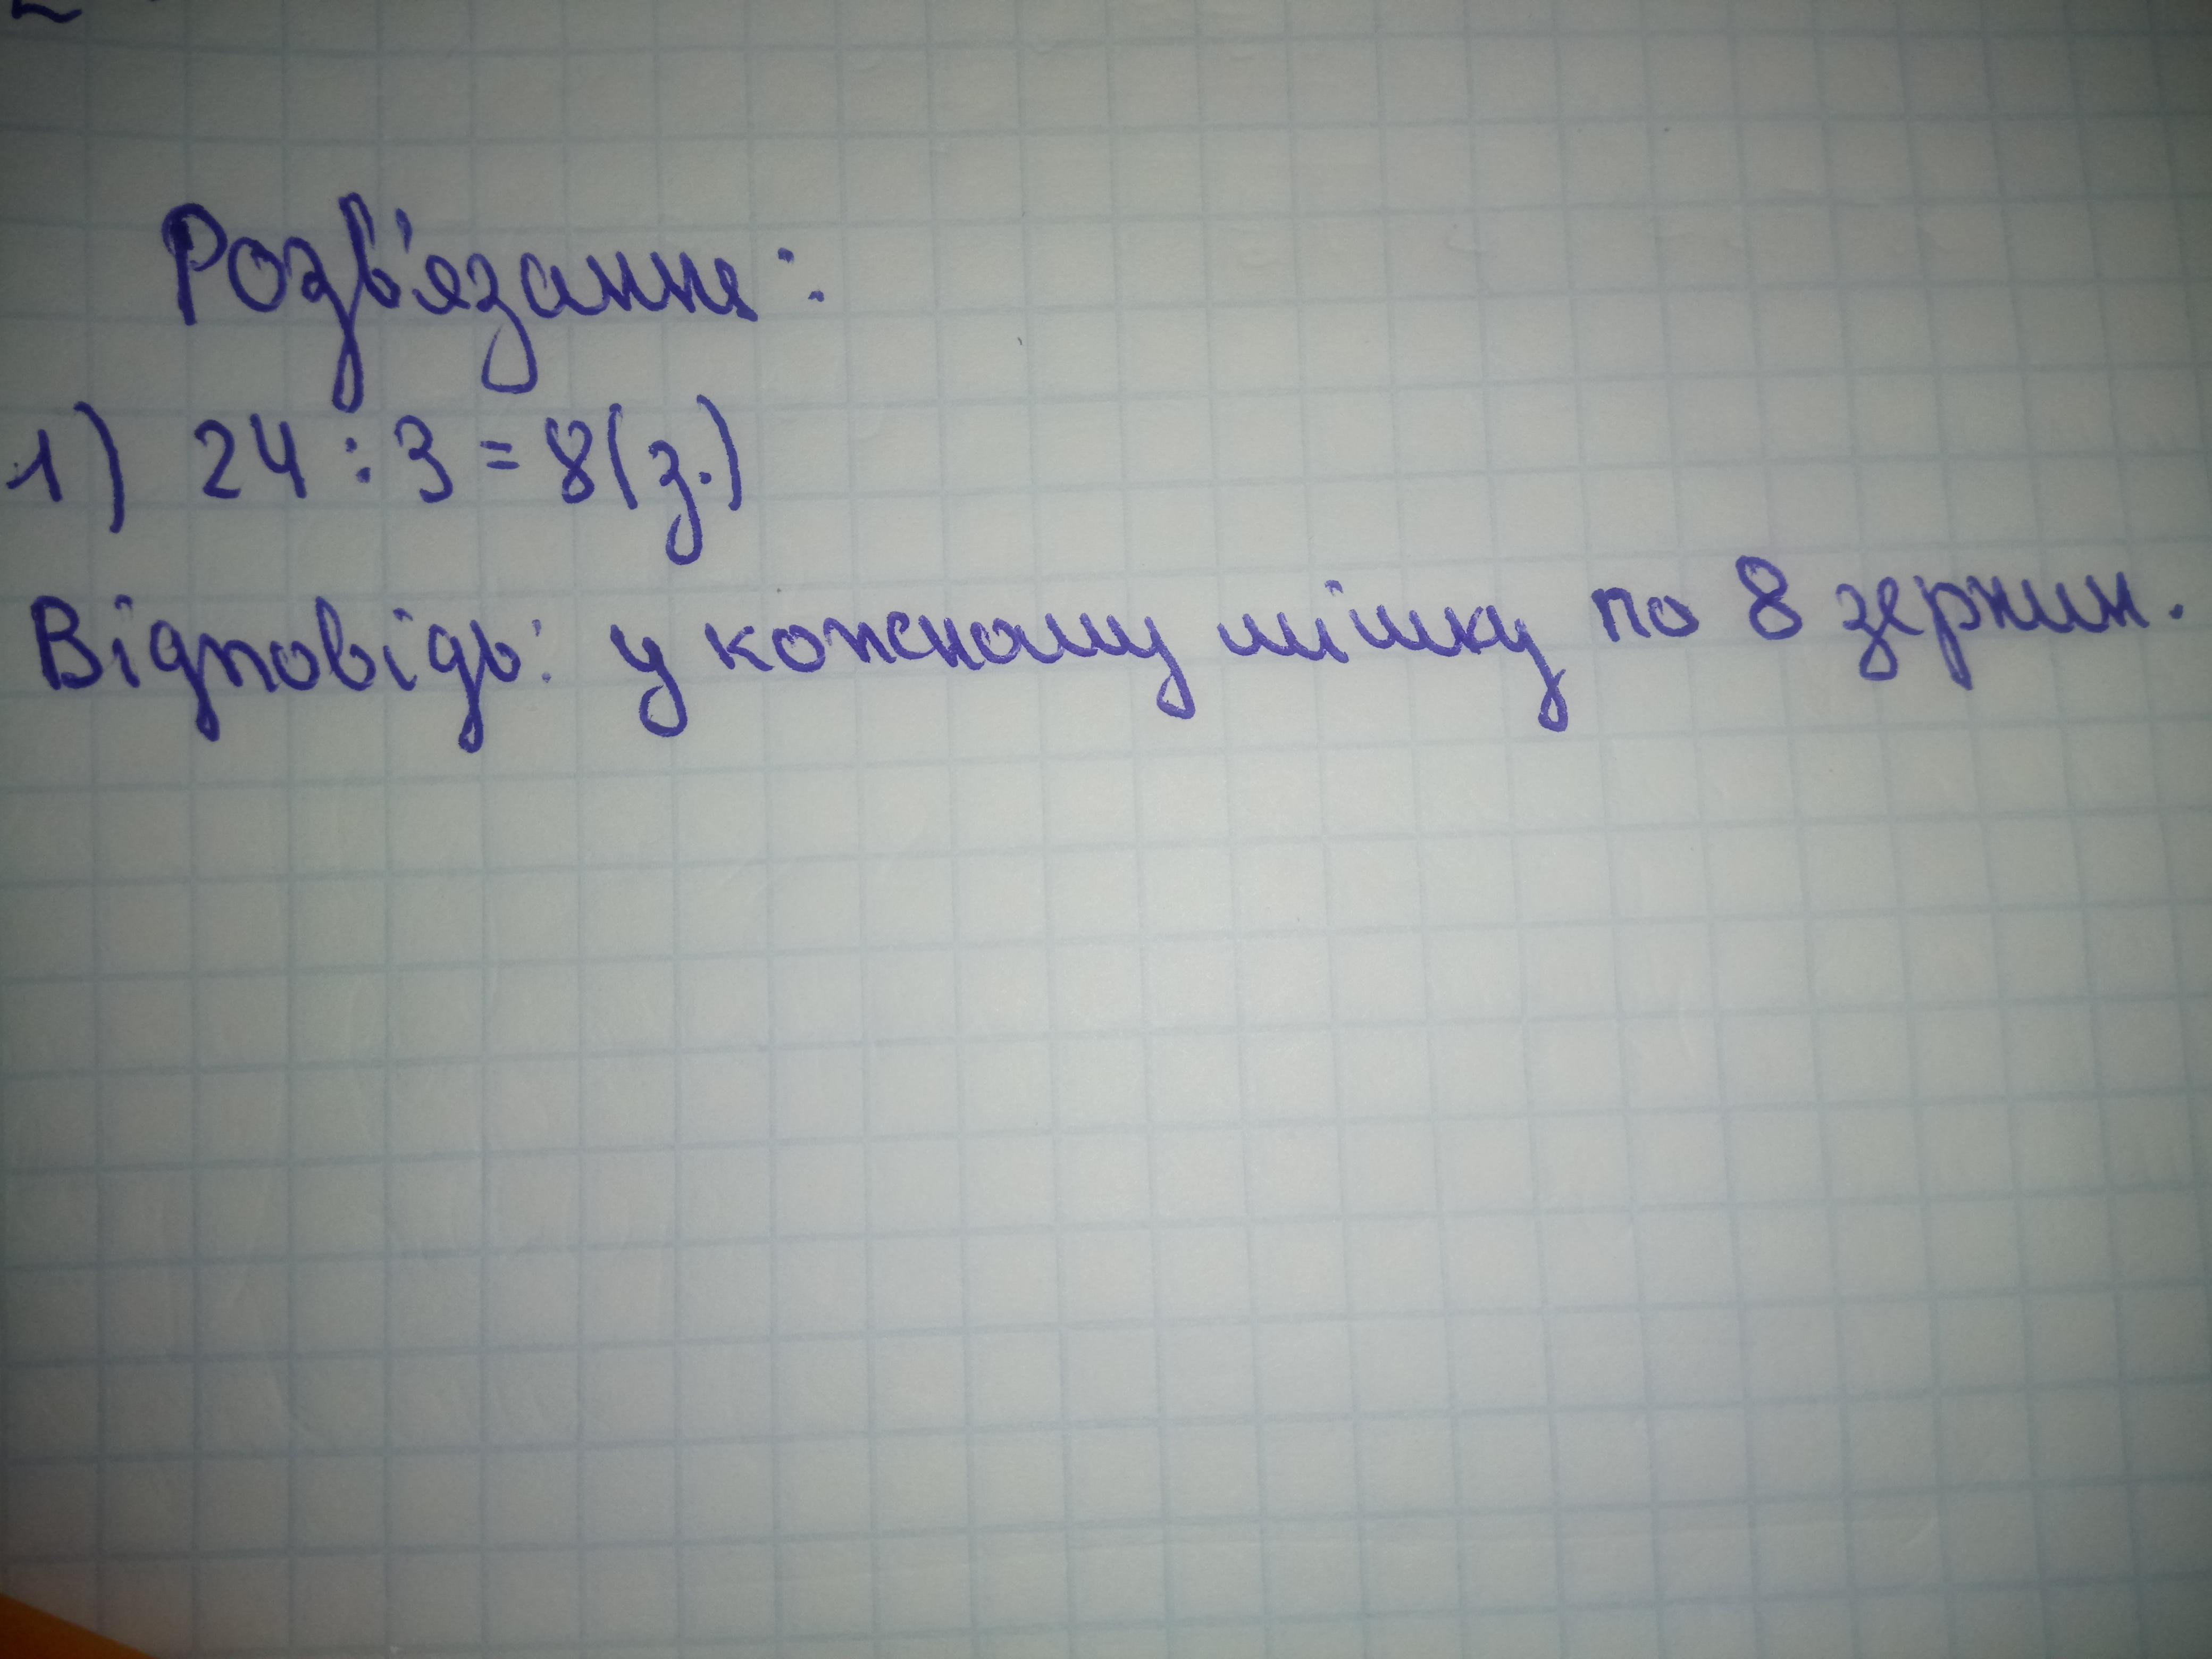 Розв'язання:
1) 24 : 3 = 8(з.)
Відповідь: у кожному мішку по 8 зернин.